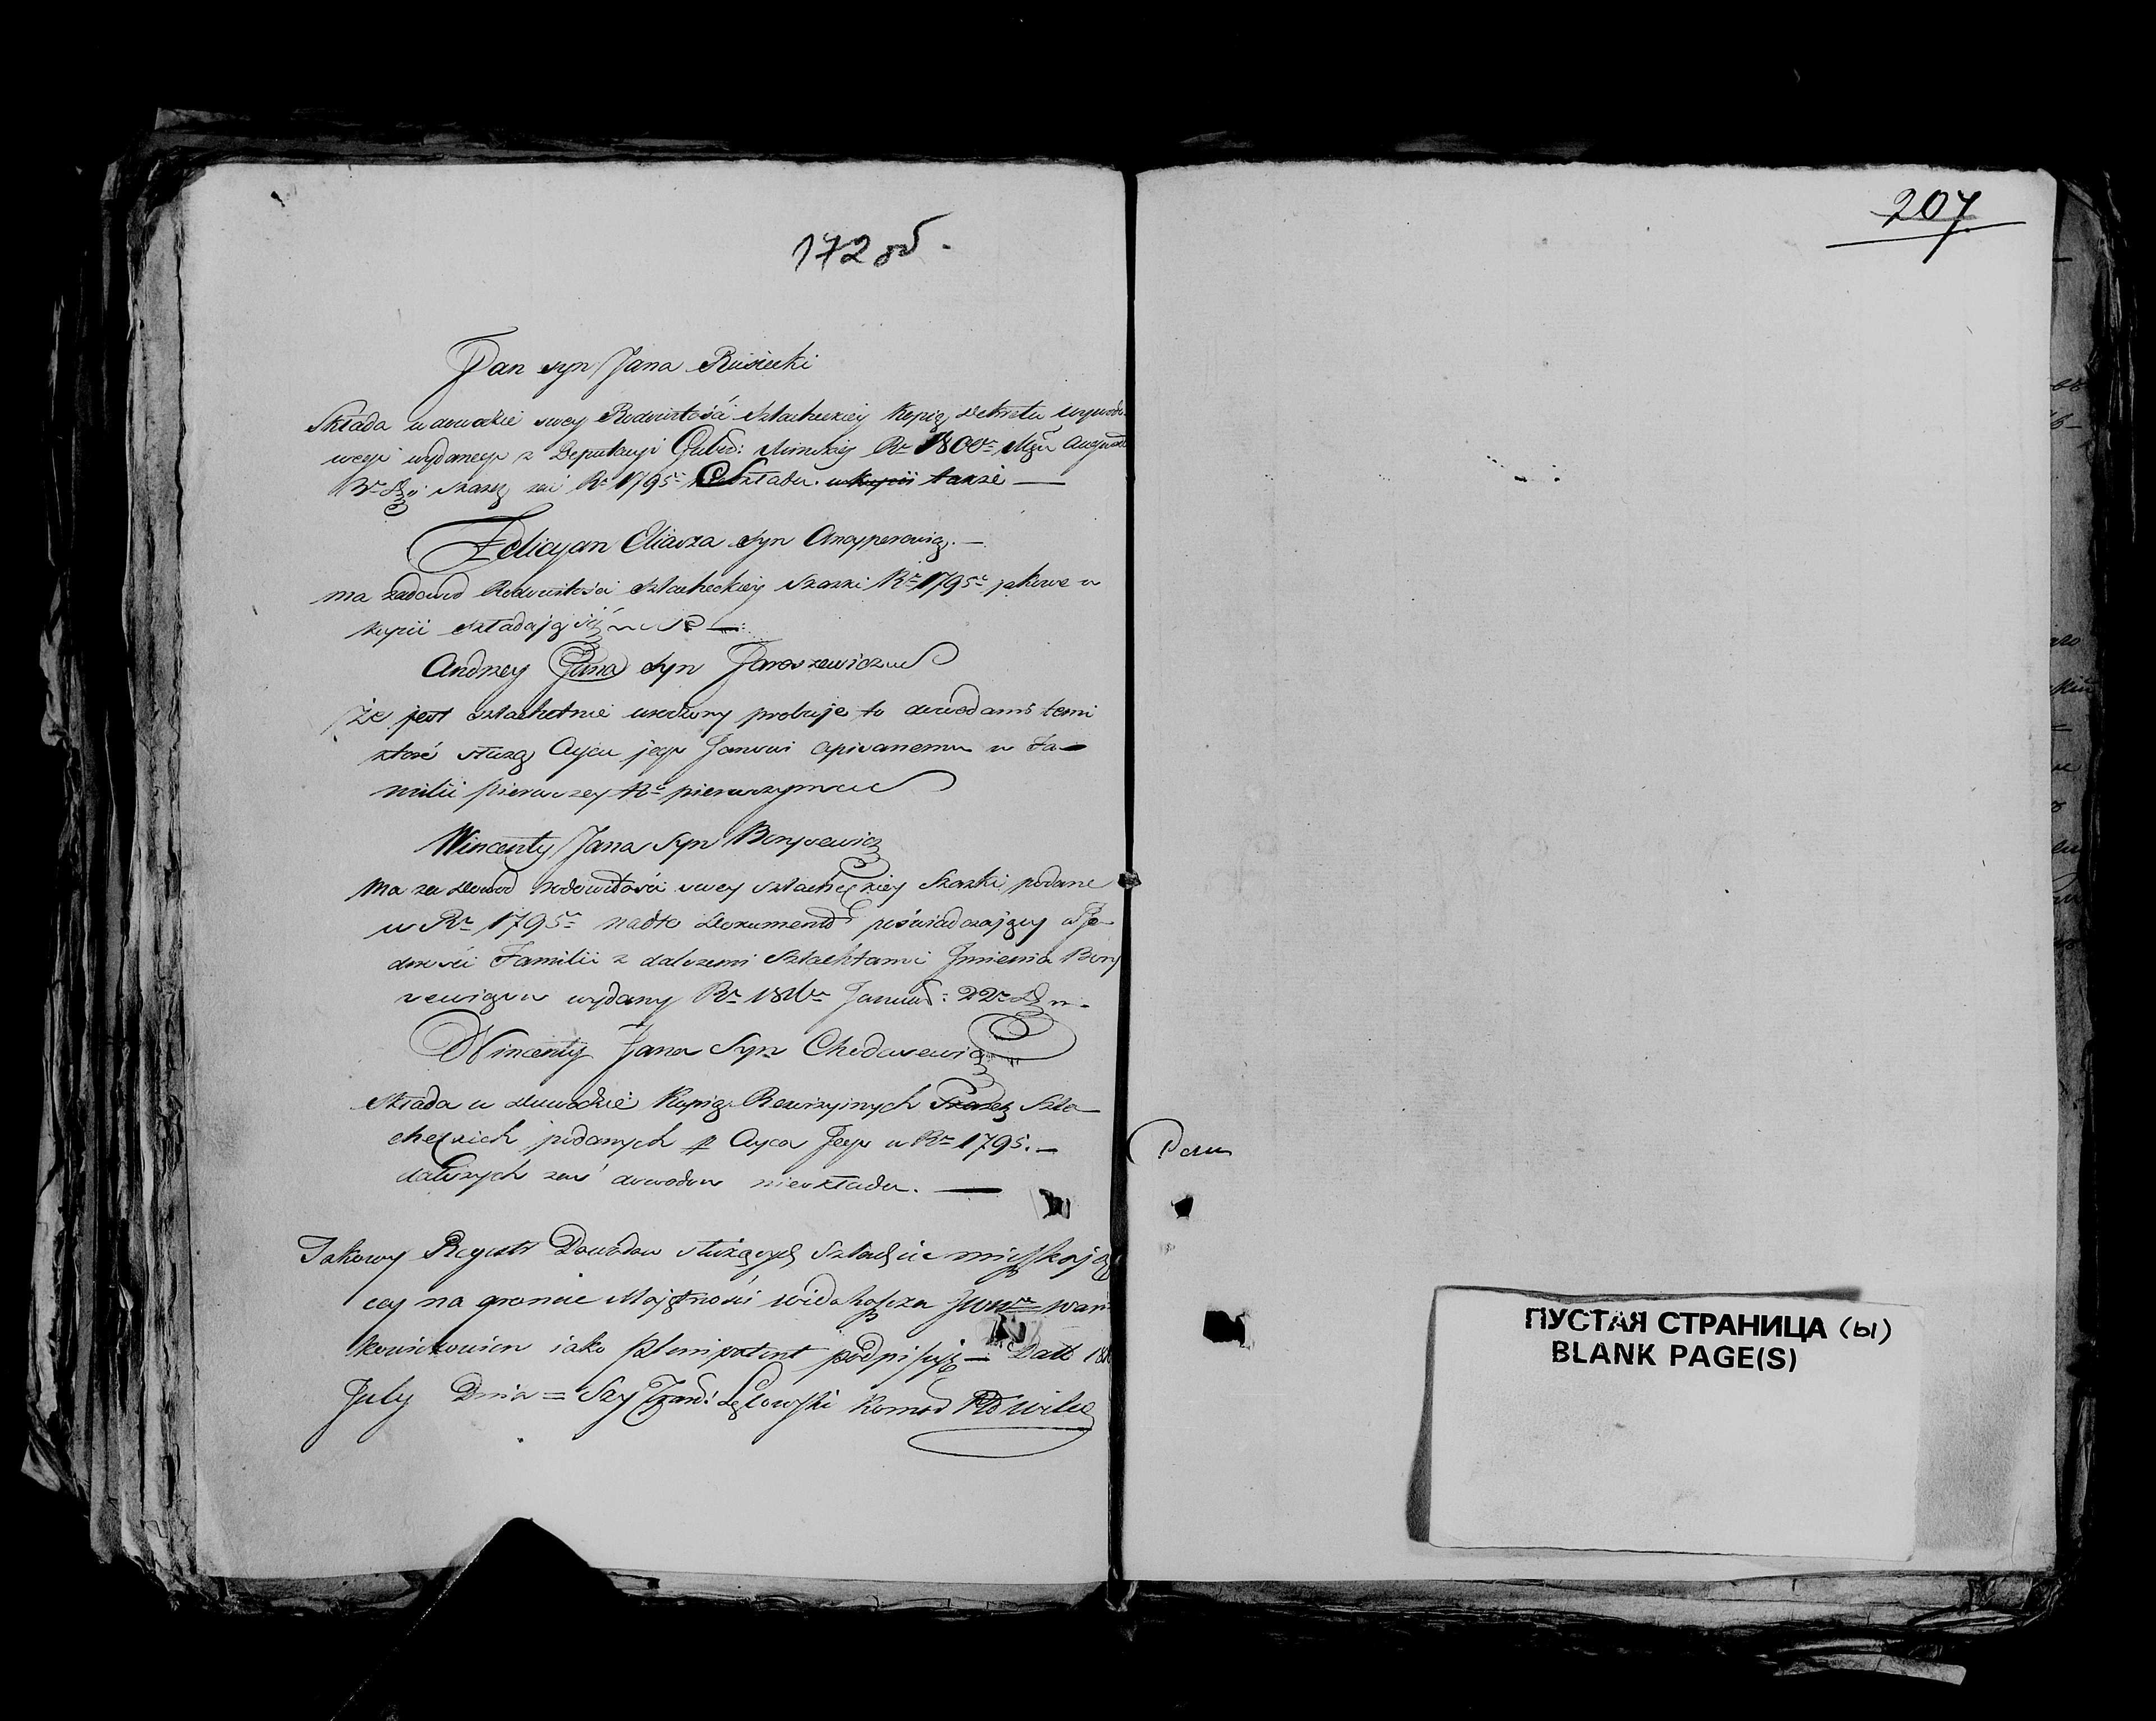 172 об.
207
Jan syn Jana Rusiecki
Składa w dowodzie swey Rodowitości Szlacheckiey Kopią Dekretu wywodo
wego wydanego z Deputacyi Gubr: Mińskiey Rr 1800 Mca Augusta
3 Skazkę zaś Rr 1795 Składa w kopii także —
Felicyan Eliasza Syn
ma za dowod Rodowitości Szlacheckiey Skazki Rr 1795 jakowe w
kopii składają się
Andrzey Jana Syn Jaroszewicz
że jest szlachetnie urodzony probuje to dowodami temi
które służą Oycu jego Janowi opisanemu w Fa-
milii pierwszey Nr pierwszym
Wincenty Jana Syn Borysewicz
ma za dowod rodowitości swey szlacheckiey Skazki podane
w Rr 1795 nadto Dokument poświadczający o Je-
dności Familii z dalszemi Szlachtami Jmienia Bory
sewiczow wydany Rr Januar: 22
Wincenty Jana Syn Chodasewicz
składa w dowodzie Kopią Rewizyinych Skazek Szla-
checkich podanych p Oyca Jego w Rr 1795. —
dalszych zaś dowodow nieskłada. —
Takowy Regestr Dowodow służących Szlachcie mieszkają
cey na gruncie Majętności Widahoszcza JWW Wań
kowiczowien iako Plenipotent podpisuję — Datt 18
July Dnia =
ПУСТАЯ СТРАНИЦА (Ы)
BLANK PAGE(S)